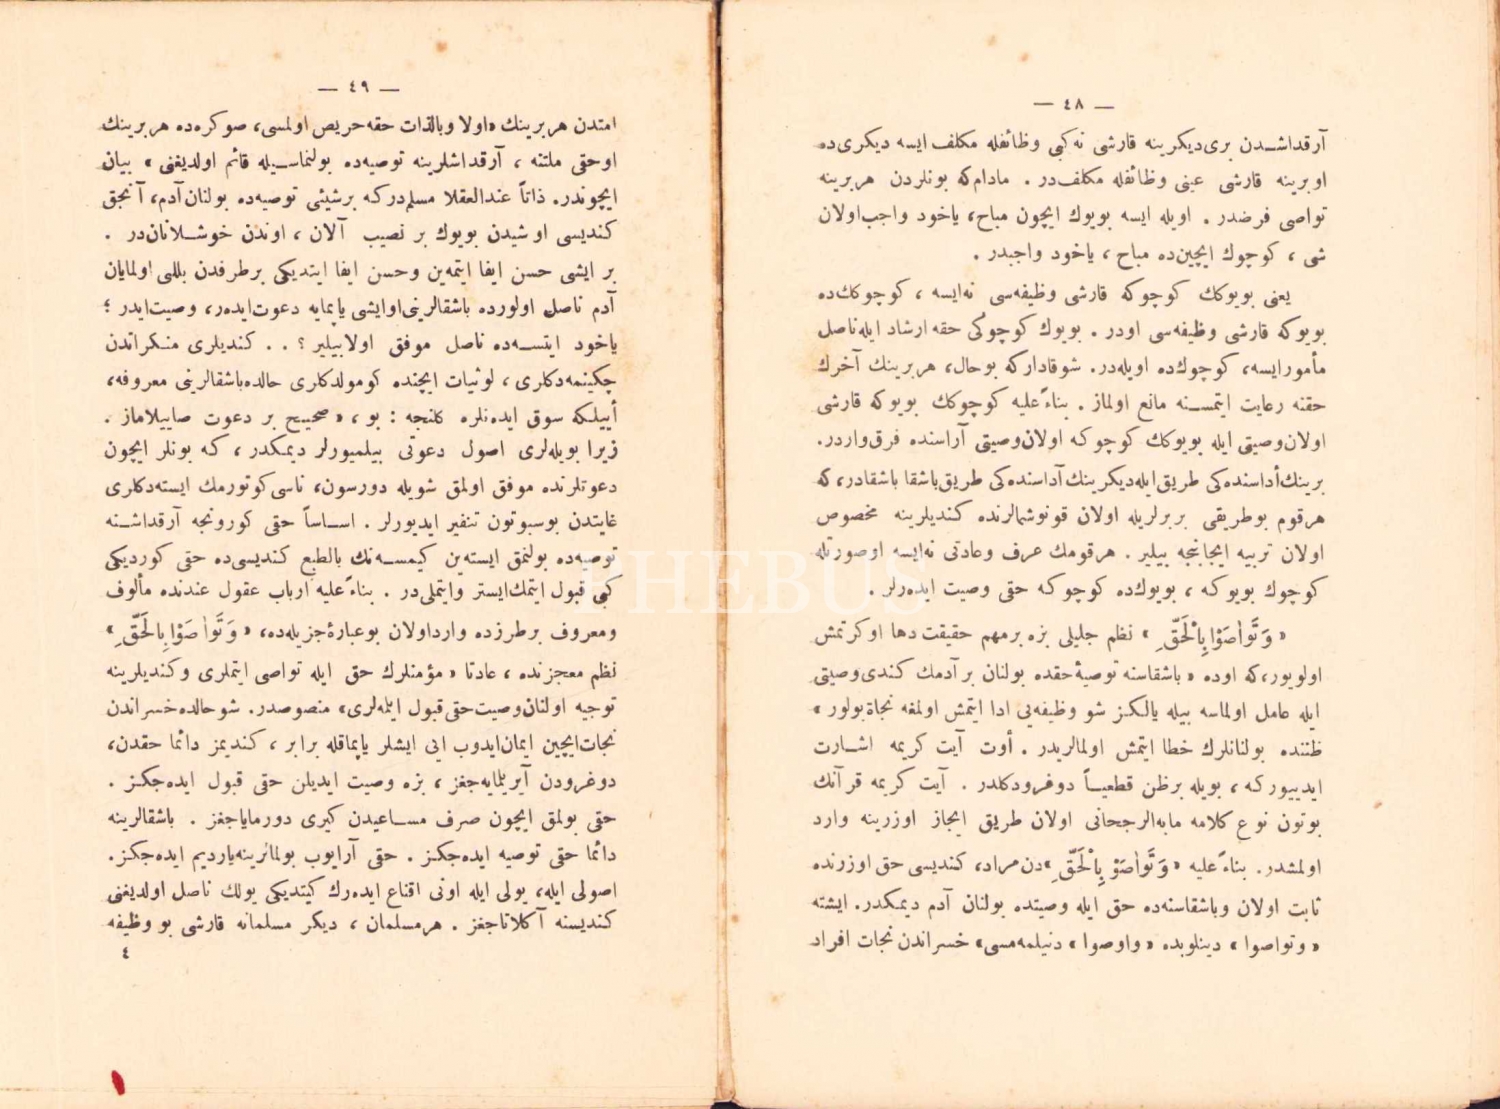 — ٤٨ —
آرقداشدن بری دیکرینه قارشی نه کبی وظائفله مکلف ایسه دیکری ده
او برینه قارشی عینی وظائفله مکلف در . مادام که بونلردن هر برینه
تواصی فرضدر . اویله ایسه بویوك ایچون مباح، یاخود واجب اولان
شی ، کوچوك ایچین ده مباح ، یاخود واجبدر .
یعنی بویوکك کوچوکه قارشی وظیفه سی نه ایسه ، کوچوکك ده
بویوکه قارشی وظیفه سی اودر . بویوك کوچوکی حقه ارشاد ایله ناصل
مأمور ایسه، کوچوك ده اویله در. شو قادار که بو حال، هر برینك آخرك
حقنه رعایت ایتمسنه مانع اولماز . بناءً علیه کوچوکك بویوکه قارشی
اولان وصیتی ایله بویوکك کوچوکه اولان وصیتی آراسنده فرق واردر.
برینك أداسنده کی طریق ایله دیکرینك آداسنده کی طریق باشقا باشقادر، که
هر قوم بو طریقی بربرلریله اولان قونوشمالرنده کندیلرینه مخصوص
اولان تربیه ایجابنجه بیلیر . هر قومك عرف وعادتی نه ایسه او صورتله
کوچوك بویوکه ، بویوك ده کوچوکه حقی وصیت ایدەرلر .
« وَتَوَاصَوْا بِالْحَقِّ » نظم جلیلی بزه برمهم حقیقت دها اوکرتمش
اولویور، که اوده « باشقاسنه توصیهٔ حقده بولنان بر آدمك کندی وصیتی
ایله عامل اولماسه بیله یالکز شو وظیفه یی ادا ایتمش اولمغه نجاة بولور »
ظننده بولنانلرك خطا ایتمش اولمالریدر . أوت آیت کریمه اشارت
ایدییورکه ، بویله برظن قطعیاً دوغرو دکلدر . آیت کریمه قرآنك
بوتون نوع کلامه مابه الرجحانی اولان طریق ایجاز اوزرینه وارد
اولمشدر. بناءً علیه « وَتَوَاصَوْ بِالْحَقِّ »دن مراد، کندیسی حق اوزرنده
ثابت اولان وباشقاسنه ده حق ایله وصیتده بولنان آدم دیمکدر. ایشته
« وتواصوا » دینلوبده « واوصوا » دنیلمه مسی» خسراندن نجات افراد
— ٤٩ —
امتدن هربرینك «اولا وبالذات حقه حریص اولمسی، صوکره ده هربرینك
اوحقی ملتنه ، آرقداشلرینه توصیه ده بولنماسیله قائم اولدیغنی » بیان
ایچوندر. ذاتاً عندالعقلا مسلم در که برشیئی توصیه ده بولنان آدم، آنجق
کندیسی او شیدن بویوك بر نصیب آلان ، اوندن خوشلانان در .
بر ایشی حسن ایفا ایتمه ین وحسن ایفا ایتدیکی بر طرفدن بللی اولمایان
آدم ناصل اولورده باشقالرینی اوایشی یاپمایه دعوت ایدەر، وصیت ایدر ؛
یاخود ایتسه ده ناصل موفق اولابیلیر ؟ . . کندیلری منکراتدن
چکینمه دکلری ، لوثیات ایچنده کومولدکلری حالده باشقالرینی معروفه،
أییلکه سوق ایدەنلره کلنجه : بو ، « صحیح بر دعوت صاییلاماز .
زیرا بویله لری اصول دعوتی بیلمیورلر دیمکدر ، که بونلر ایچون
دعوتلرنده موفق اولمق شویله دورسون، ناسی کوتورمك ایسته دکلری
غایتدن بوسبوتون تنفیر ایدیورلر . اساساً حقی کورونجه آرقداشنه
توصیه ده بولنمق ایسته ین کیمسه نك بالطبع کندیسی ده حقی کوردیکی
کبی قبول ایتمك ایستر وایتملی در . بناءً علیه ارباب عقول عندنده مألوف
ومعروف برطرزده وارد اولان بو عبارهٔ جزیله ده، « وَتَوَاصَوْا بِالْحَقِّ »
نظم معجزنده ، عادتا « مؤمنلرك حق ایله تواصی ایتملری و کندیلرینه
توجیه اولنان وصیت حقی قبول ایتمه لری» منصوصدر. شو حالده خسراندن
نجات ایچین ایمان ایدوب ایی ایشلر یاپمقله برابر ، کندیمز دائما حقدن،
دوغرودن آیریلمایه جغز ، بزه وصیت ایدیلن حقی قبول ایده جکز .
حقی بولمق ایچون صرف مساعیدن کیری دورمایاجغز . باشقالرینه
دائما حقی توصیه ایده جکز . حقی آرایوب بولمالرینه یاردیم ایده جکز.
اصولی ایله، یولی ایله اونی اقناع ایدەرك کیتدیکی یولك ناصل اولدیغنی
کندیسنه آکلاتاجغز . هر مسلمان ، دیکر مسلمانه قارشی بو وظیفه
٤
PHEBUS